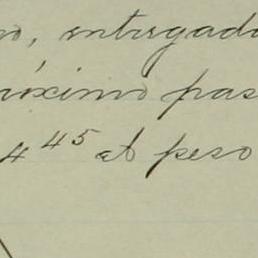 no, entregado
próximo pas
4 45 el peso